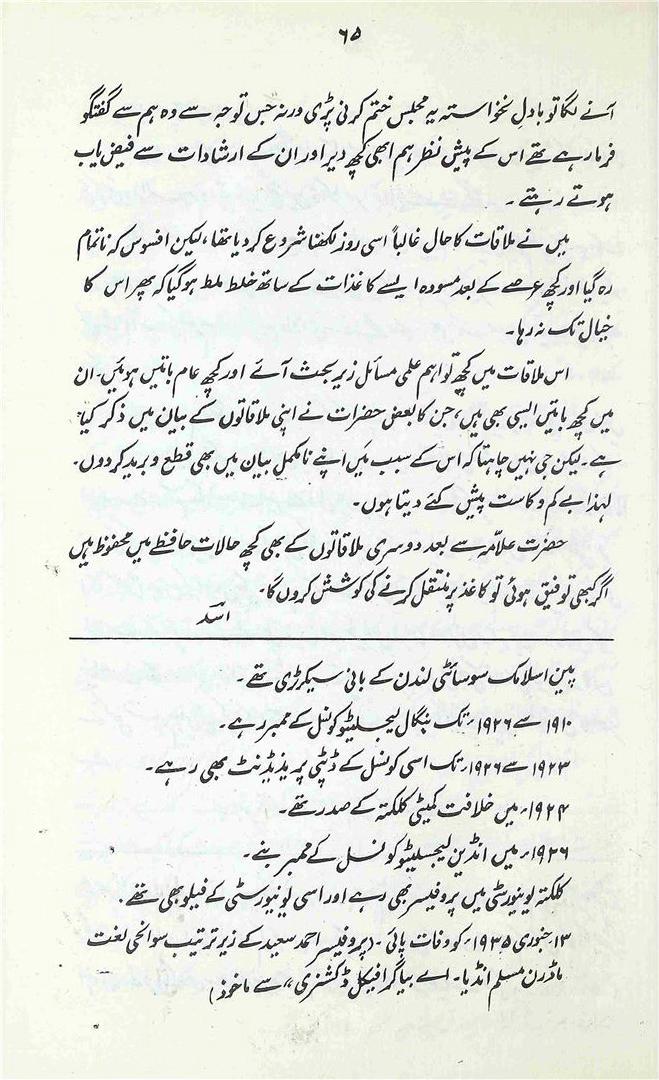 ۶۵
آنے لگا تو بادلِ نخواستہ یہ مجلس ختم کرنی پڑی ورنہ جس توجہ سے وہ ہم سے گفتگو
فرما رہے تھے اس کے پیش نظر ہم ابھی کچھ دیر اور ان کے ارشادات سے فیض یاب
ہوتے رہتے ۔
میں نے ملاقات کا حال غالباً اسی روز لکھنا شروع کر دیا تھا ، لیکن افسوس کہ ناتمام
رہ گیا اور کچھ عرصے کے بعد مسودہ ایسے کاغذات کے ساتھ خلط ملط ہو گیا کہ پھر اس کا
خیال تک نہ رہا۔
اس ملاقات میں کچھ تو اہم علمی مسائل زیر بحث آئے اور کچھ عام باتیں ہوئیں۔ ان
میں کچھ باتیں ایسی بھی ہیں، جن کا بعض حضرات نے اپنی ملاقاتوں کے بیان میں ذکر کیا
ہے۔ لیکن جی نہیں چاہتا کہ اس کے سبب میں اپنے نامکمل بیان میں بھی قطع و برید کر دوں۔
لہٰذا بے کم و کاست پیش کئے دیتا ہوں۔
حضرت علامہ سے بعد دوسری ملاقاتوں کے بھی کچھ حالات حافظے میں محفوظ ہیں
اگر کبھی توفیق ہوئی تو کاغذ پر منتقل کرنے کی کوشش کروں گا۔
اسد
پین اسلامک سوسائٹی لندن کے بانی سیکرٹری تھے ۔
۱۹۱۰ سے ۱۹۲۶ء تک بنگال لیجسلیٹو کونسل کے ممبر رہے ۔
۱۹۲۳ سے ۱۹۲۶ء تک اسی کونسل کے ڈپٹی پریذیڈنٹ بھی رہے ۔
۱۹۲۴ء میں خلافت کمیٹی کلکتہ کے صدر تھے۔
۱۹۲۶ء میں انڈین لیجسلیٹو کونسل کے ممبر بنے ۔
کلکتہ یونیورسٹی میں پروفیسر بھی رہے اور اسی یونیورسٹی کے فیلو بھی تھے ۔
۱۳ جنوری ۱۹۳۵ء کو وفات پائی ۔ (پروفیسر احمد سعید کے زیر ترتیب سوانحی لغت
ماڈرن مسلم انڈیا۔ اے بیاگرافیکل ڈکشنری“ سے ماخوذ)